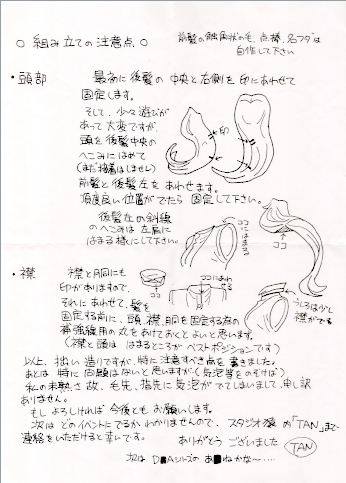 ○ 組み立ての注意点 ○
前髪の触角状の毛、点襟、名フダは
自作して下さい
・頭部 最初に後髪の中央と右側を印にあわせて
固定します。
そして、少々遊びが
あって大変ですが、
頭を後髪中央の
へこみにはめて
(まだ接着はしません)
前髪と後髪左をあわせます。
頂度良い位置がでたら固定して下さい。
後髪左の斜線
のへこみは左肩に
はまる様にして下さい。
印
ココにはまる
ココ
・襟 襟と胴にも
印がありますので、
それにあわせて、髪を
固定する前に、頭、襟、胴を固定する為の
補強線用の穴をあけておくとよいと思います。
(襟と頭は はまるところがベストポジションです)
ココ
ココにあわせる
ココ
うしろは少し
襟がでる
以上、拙い造りですが、特に注意すべき点を書きました。
あとは特に問題はないと思いますが、(気泡等をのぞけば)
私の未熟さ故、毛先、指先に気泡がでてしまいまして、申し訳
ありません。
もしよろしければ今後ともお願いします。
次はどのイベントにでるかわかりませんので、スタジオ 内「TAN」まで
連絡をいただけると幸いです。
ありがとうございました
TAN
次は D■Aシリーズの あ■ねかな〜‥‥